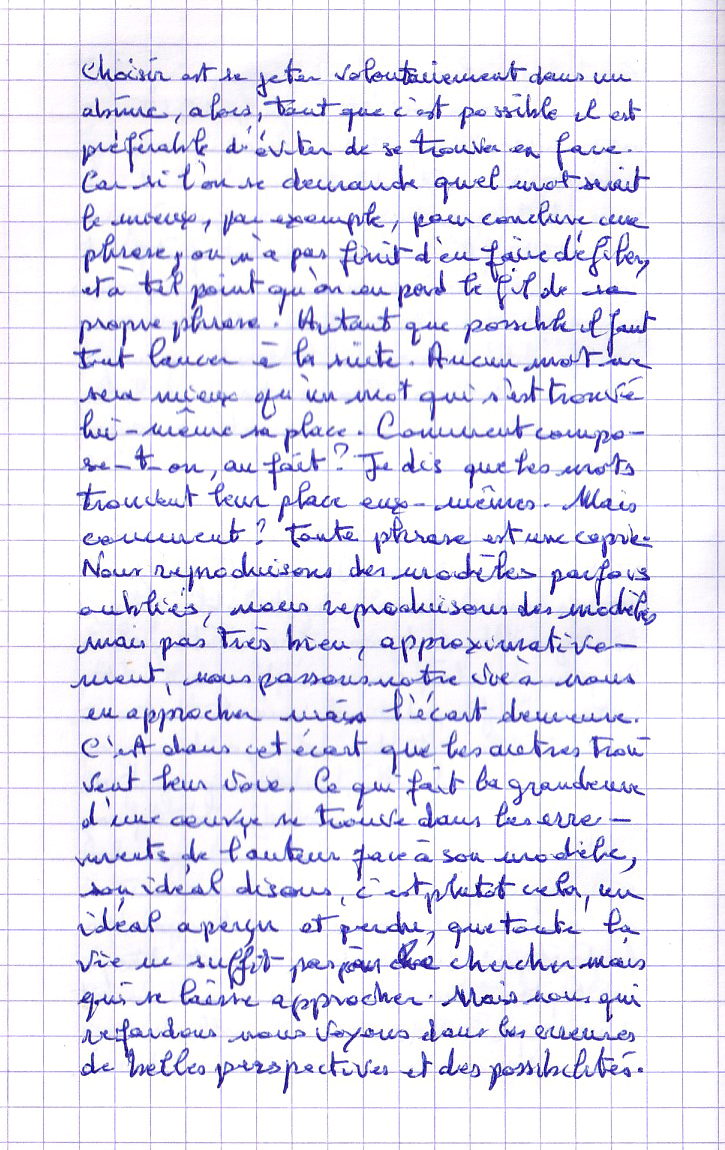 Choisir est se jeter volontairement dans un
abîme, alors, tant que c'est possible il est
préférable d'éviter de se trouver en face.
Car si l'on se demande quel mot serait
le mieux, par exemple, pour conclure une
phrase, on n'a pas finit d'en faire défiler,
et à tel point qu'on en perd le fil de sa
propre phrase. Autant que possible il faut
tout lancer à la suite. Aucun mot ne
sera mieux qu'un mot qui s'est trouvé
lui-même sa place. Comment compo-
se-t-on, au fait? Je dis que les mots
trouvent leur place eux-mêmes. Mais
comment? toute phrase est une copie.
Nous reproduisons des modèles parfois
oubliés, nous reproduisons des modèles
mais pas très bien, approximative-
ment, nous passons notre vie à nous
en approcher mais l'écart demeure.
C'est dans cet écart que les autres trou
vent leur voie. Ce qui fait la grandeur
d'une œuvre se trouve dans les erre-
ments de l'auteur face à son modèle,
son idéal disons, c'est plutot cela, un
idéal aperçu et perdu, que toute la
vie ne suffit pas chercher mais
qui se laisse approcher. Mais nous qui
regardons nous voyons dans les erreurs
de belles perspectives et des possibilités.